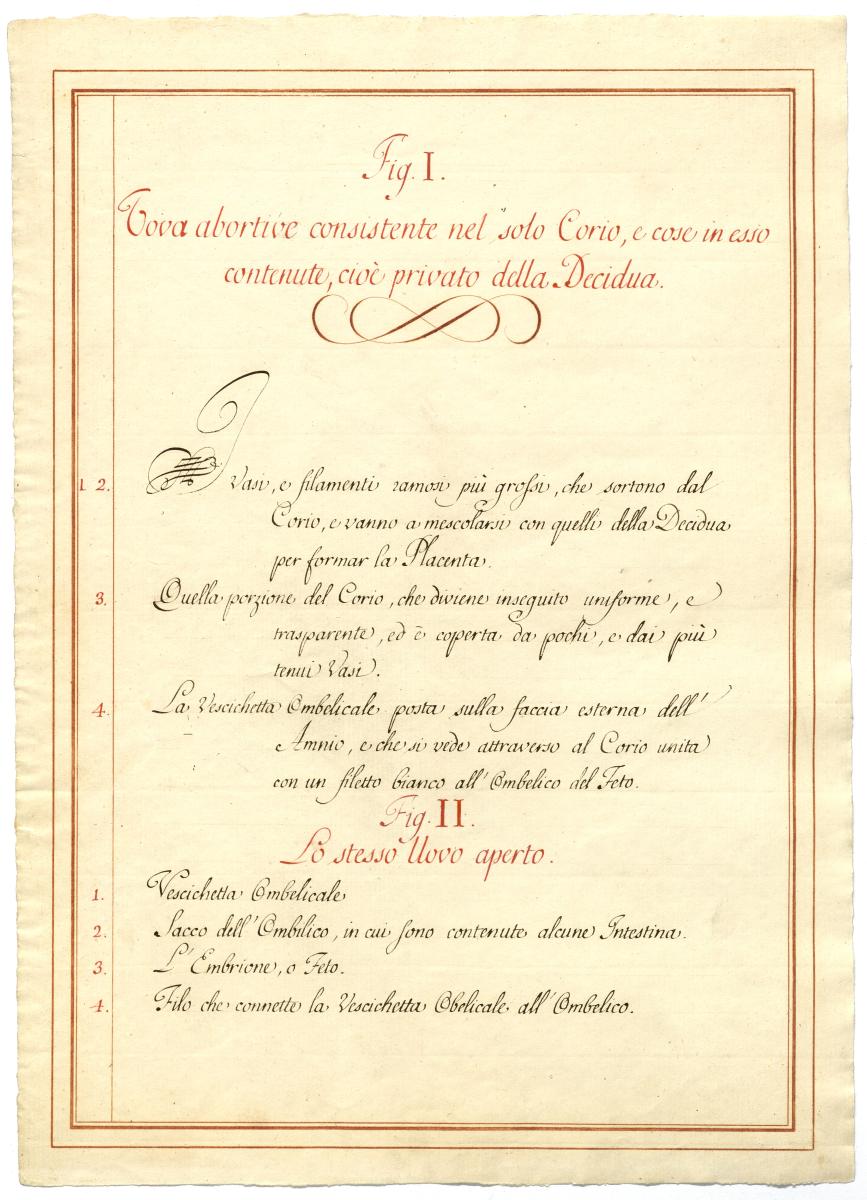 Fig. I.
Vova abortive consistente nel solo Corio, e cose in esso
contenute, cioè privato della Decidua.
1. 2. I Vasi, e filamenti ramosi più grossi, che sortono dal
Corio, e vanno a mescolarsi con quelli della Decidua
per formar la Placenta.
3. Quella porzione del Corio, che diviene inseguito uniforme, e
trasparente, ed è coperta da pochi, e dai più
tenui Vasi.
4. La Vescichetta Ombelicale posta sulla faccia esterna dell'
Amnio, e che si vede attraverso al Corio unita
con un filetto bianco all'Ombelico del Feto.
Fig. II.
Lo stesso Uovo aperto.
1. Vescichetta Ombelicale
2. Sacco dell'Ombilico, in cui sono contenute alcune Intestina.
3. L'Embrione, o Feto.
4. Filo che connette la Vescichetta Obelicale all'Ombelico.